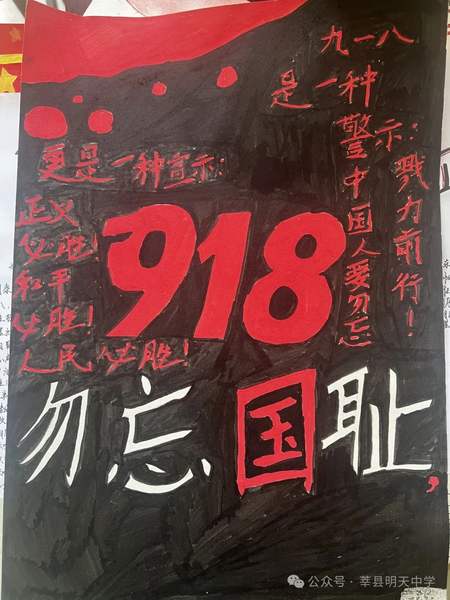 九一八
是一种
警示：
中国人要勿忘
戮力前行！
更是一种宣示：
正义
必胜！
和平
必胜！
人民必胜！
918
勿忘国耻，
公众号·莘县明天中学